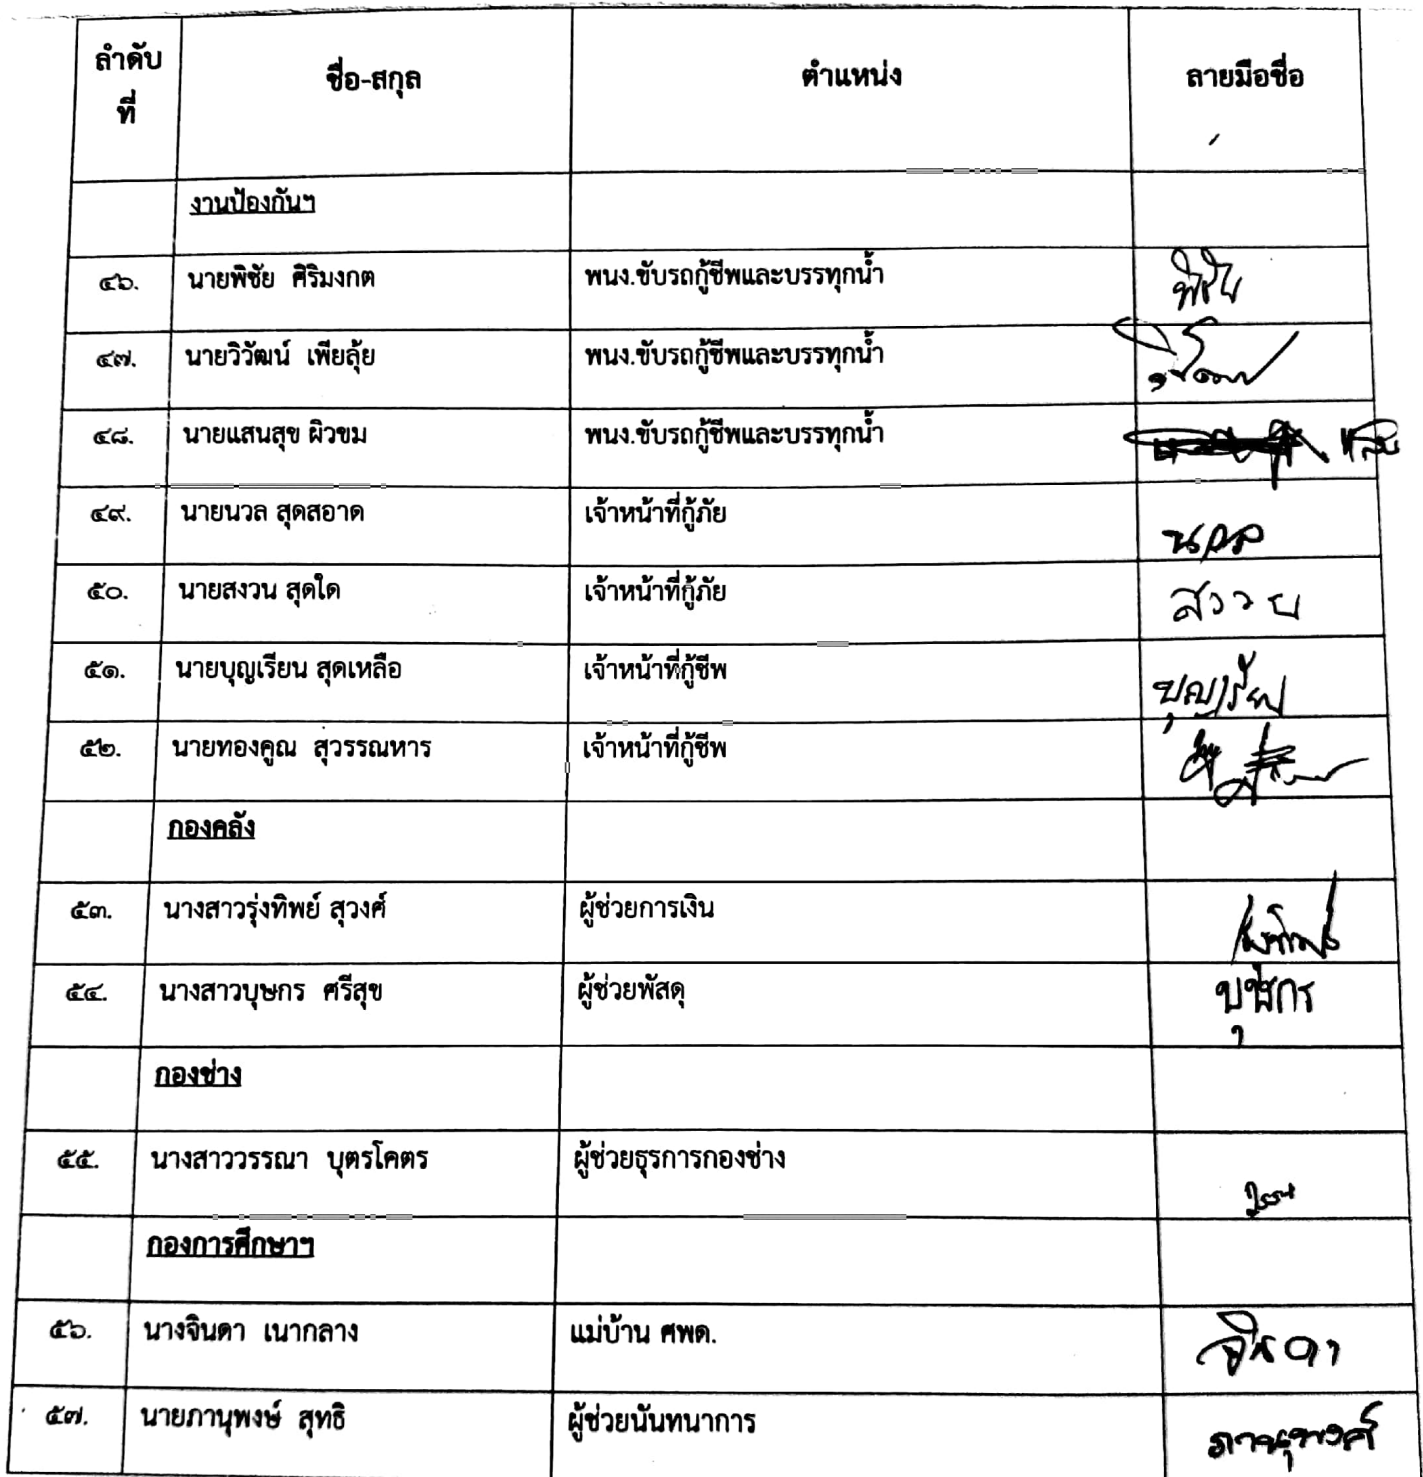 ลำดับที่ ชื่อ-สกุล ตำแหน่ง ลายมือชื่อ
งานป้องกันฯ
๔๖. นายพิชัย ศิริมงกต พนง.ขับรถกู้ชีพและบรรทุกน้ำ พิชัย
๔๗. นายวิวัฒน์ เพียลุ้ย พนง.ขับรถกู้ชีพและบรรทุกน้ำ
๔๘. นายแสนสุข ผิวขม พนง.ขับรถกู้ชีพและบรรทุกน้ำ
๔๙. นายนวล สุดสอาด เจ้าหน้าที่กู้ภัย นวล
๕๐. นายสงวน สุดใด เจ้าหน้าที่กู้ภัย
๕๑. นายบุญเรียน สุดเหลือ เจ้าหน้าที่กู้ชีพ
๕๒. นายทองคูณ สุวรรณหาร เจ้าหน้าที่กู้ชีพ
กองคลัง
๕๓. นางสาวรุ่งทิพย์ สุวงศ์ ผู้ช่วยการเงิน
๕๔. นางสาวบุษกร ศรีสุข ผู้ช่วยพัสดุ บุษกร
กองช่าง
๕๕. นางสาววรรณา บุตรโคตร ผู้ช่วยธุรการกองช่าง
กองการศึกษาฯ
๕๖. นางจินดา เนากลาง แม่บ้าน ศพด. จินดา
๕๗. นายภานุพงษ์ สุทธิ ผู้ช่วยนันทนาการ